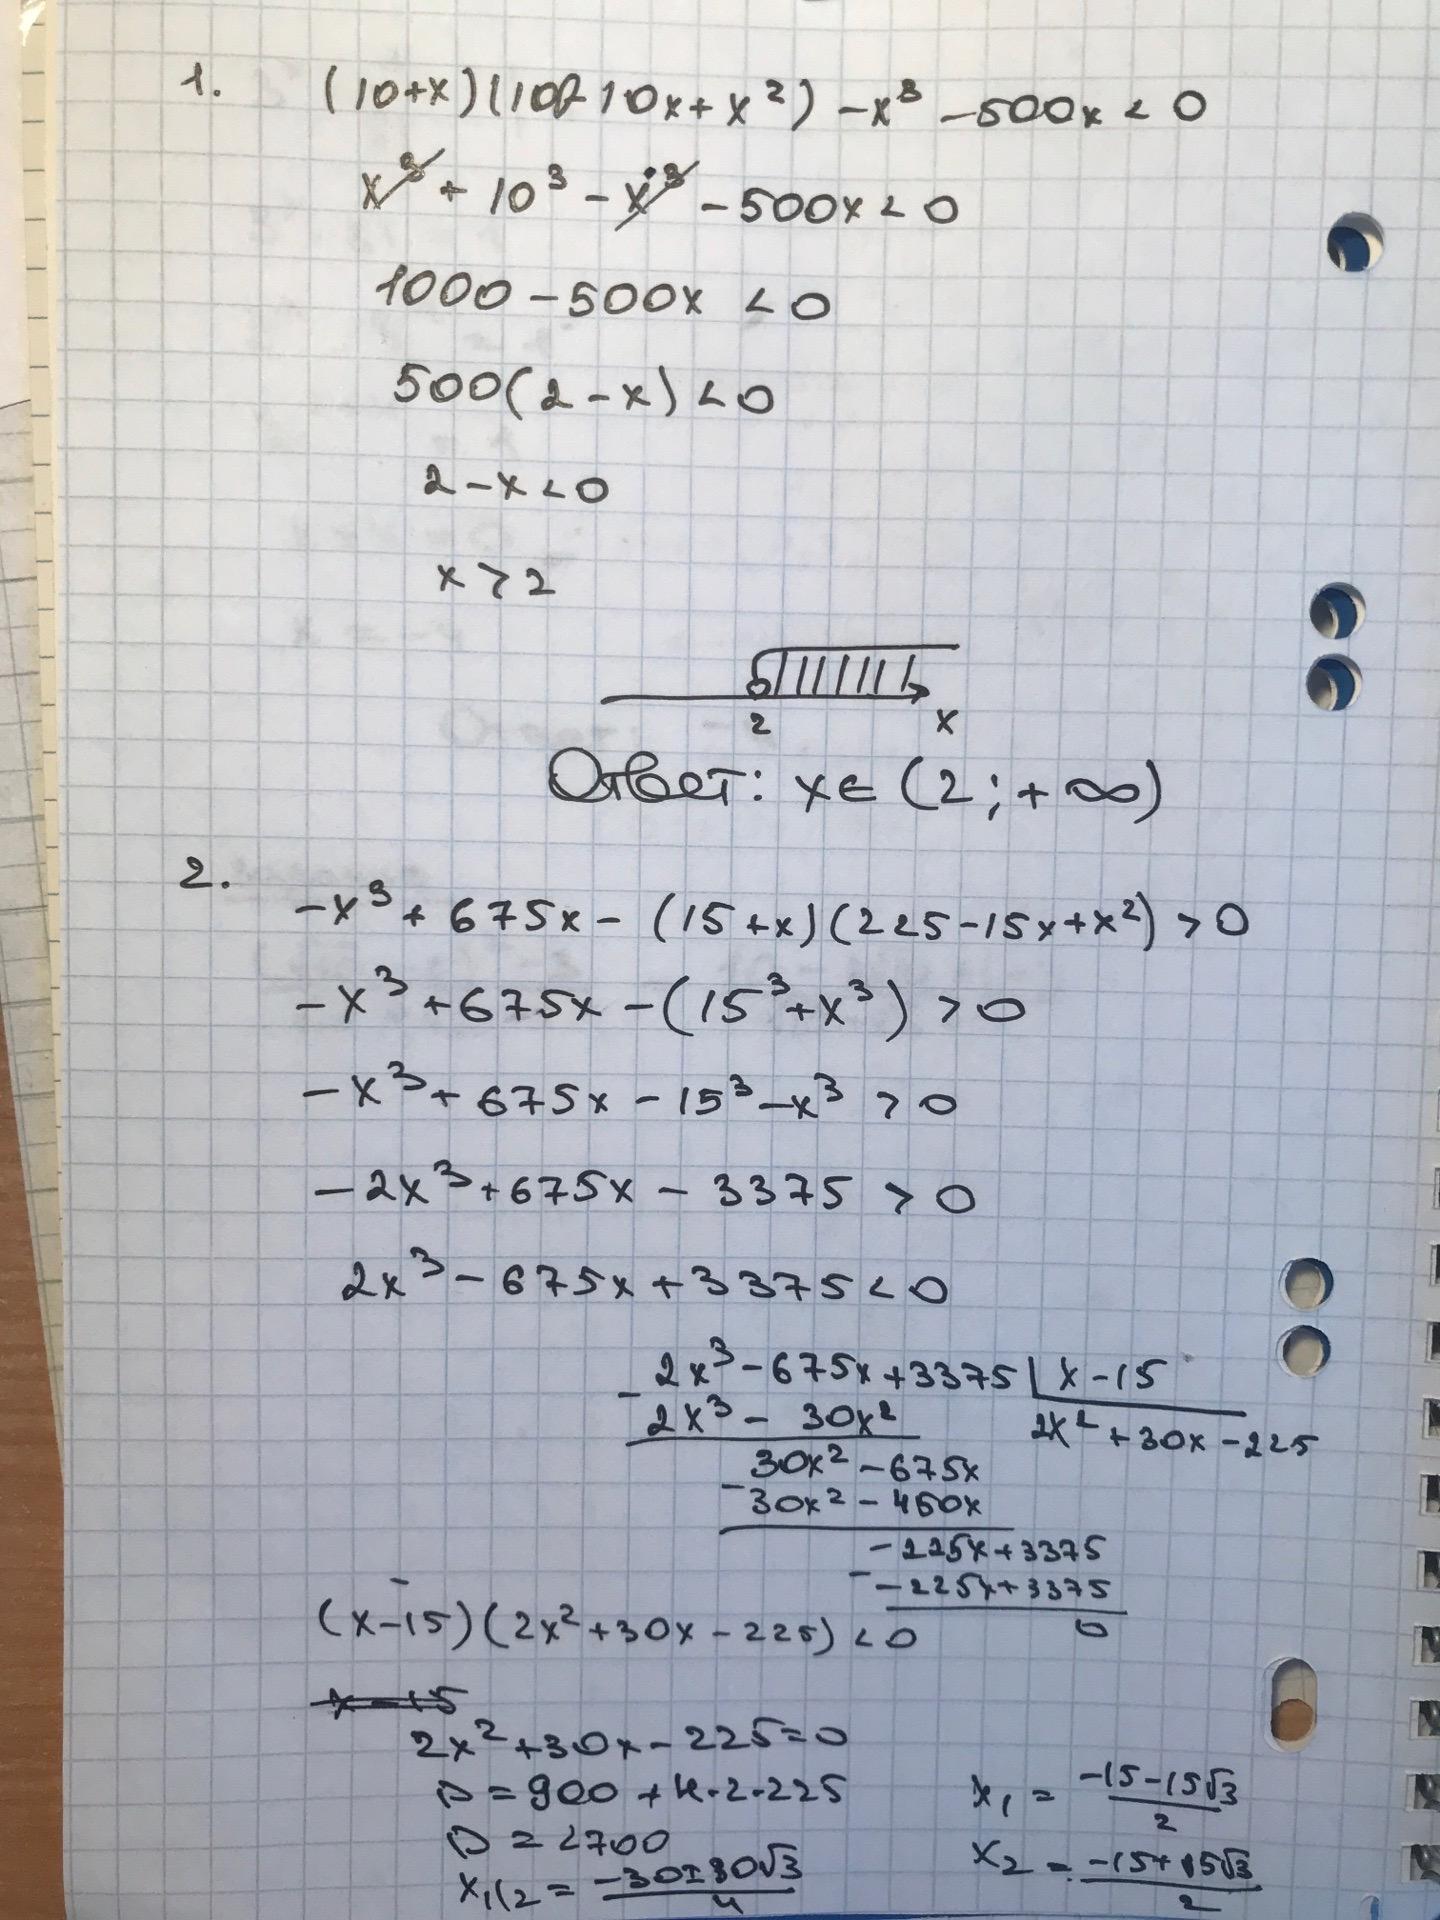 1. (10+x)(102-10x+x²) -x³ -500x < 0
x³ + 10³ - x³ - 500x < 0
1000 - 500x < 0
500(2 - x) < 0
2 - x < 0
x > 2
2 x
Ответ: x∈(2; +∞)
2.
-x³ + 675x - (15+x)(225-15x+x²) > 0
-x³ + 675x - (15³+x³) > 0
-x³ + 675x - 15³ - x³ > 0
-2x³ + 675x - 3375 > 0
2x³ - 675x + 3375 < 0
- 2x³ - 675x + 3375 | x - 15
2x³ - 30x² 2x² + 30x - 225
30x² - 675x
- 30x² - 450x
-225x + 3375
- -225x + 3375
(x-15)(2x² + 30x - 225) < 0 0
x - 15
2x² + 30x - 225 = 0
D = 900 + 4·2·225 x₁ = (-15 - 15√3)/2
D = 2700 x₂ = (-15 + 15√3)/2
x₁,₂ = (-30 ± 30√3)/4